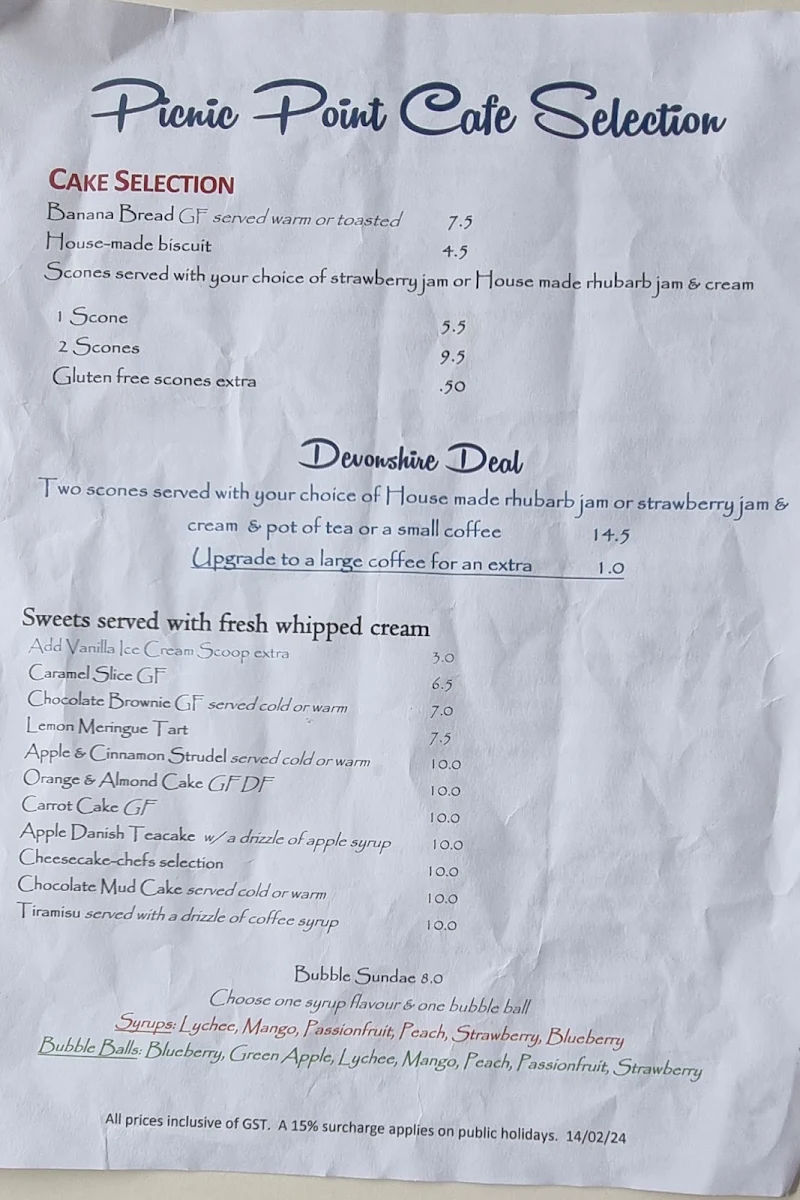 Picnic Point Cafe Selection
CAKE SELECTION
Banana Bread GF served warm or toasted 7.5
House-made biscuit 4.5
Scones served with your choice of strawberry jam or House made rhubarb jam & cream
1 Scone 5.5
2 Scones 9.5
Gluten free scones extra .50
Devonshire Deal
Two scones served with your choice of House made rhubarb jam or strawberry jam &
cream & pot of tea or a small coffee 14.5
Upgrade to a large coffee for an extra 1.0
Sweets served with fresh whipped cream
Add Vanilla Ice Cream Scoop extra 3.0
Caramel Slice GF 6.5
Chocolate Brownie GF served cold or warm 7.0
Lemon Meringue Tart 7.5
Apple & Cinnamon Strudel served cold or warm 10.0
Orange & Almond Cake GF DF 10.0
Carrot Cake GF 10.0
Apple Danish Teacake w/ a drizzle of apple syrup 10.0
Cheesecake-chefs selection 10.0
Chocolate Mud Cake served cold or warm 10.0
Tiramisu served with a drizzle of coffee syrup 10.0
Bubble Sundae 8.0
Choose one syrup flavour & one bubble ball
Syrups: Lychee, Mango, Passionfruit, Peach, Strawberry, Blueberry
Bubble Balls: Blueberry, Green Apple, Lychee, Mango, Peach, Passionfruit, Strawberry
All prices inclusive of GST. A 15% surcharge applies on public holidays. 14/02/24